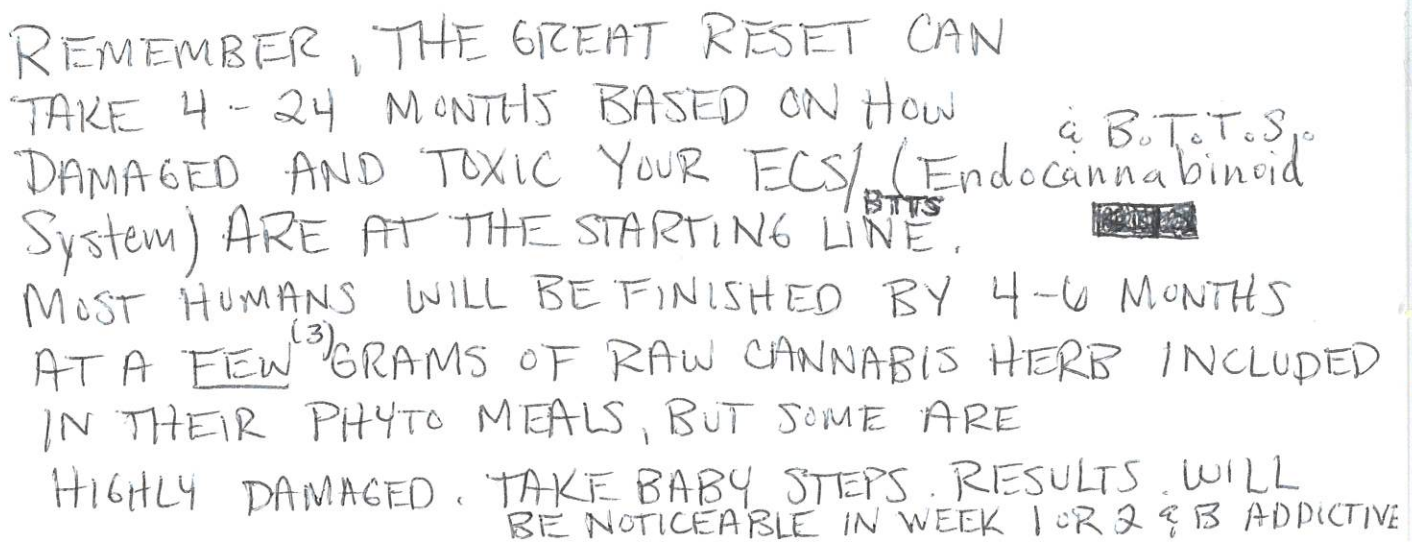 REMEMBER, THE GREAT RESET CAN
TAKE 4-24 MONTHS BASED ON HOW
& B.T.T.S.
DAMAGED AND TOXIC YOUR ECS/ (Endocannabinoid
BTTS
System) ARE AT THE STARTING LINE.
MOST HUMANS WILL BE FINISHED BY 4-6 MONTHS
AT A FEW (3) GRAMS OF RAW CANNABIS HERB INCLUDED
IN THEIR PHYTO MEALS, BUT SOME ARE
HIGHLY DAMAGED. TAKE BABY STEPS. RESULTS WILL
BE NOTICEABLE IN WEEK 1 OR 2 & B ADDICTIVE